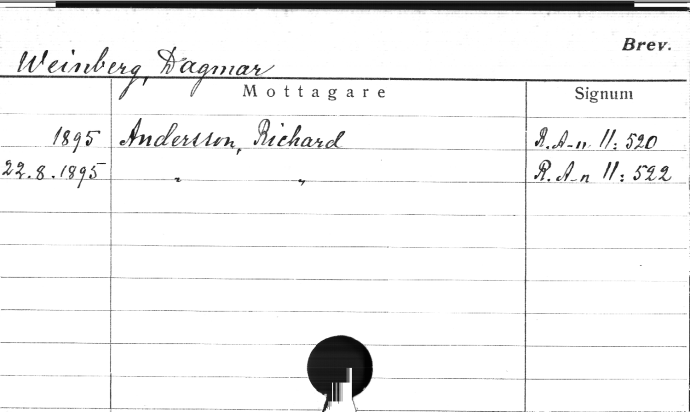 Brev.
Weinberg, Dagmar
Mottagare Signum
1895 Andersson, Richard R.A-n II: 520
22.8.1895 " " R.A-n II: 522